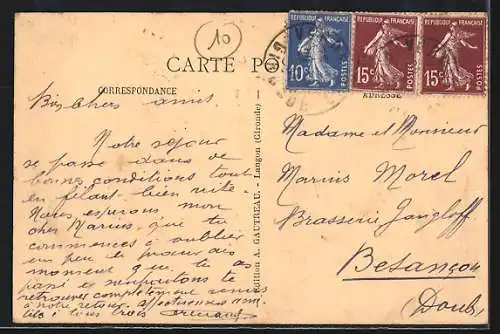 10
CARTE PO
CORRESPONDANCE
ADRESSE
REPUBLIQUE FRANÇAISE
10c POSTES
REPUBLIQUE FRANÇAISE
15c POSTES
REPUBLIQUE FRANÇAISE
15c POSTES
Bien chers amis.
Notre séjour
se passe dans de
bonnes conditions tout
en filant bien vite.
Nous espérons mon
cher Marius, que tu
commences à oublier
un peu le
moment que tu as
passé et
retrouver complètement remis
à notre retour.
à tous trois
Edition A. GAUTREAU. - Langon (Gironde)
Madame et Monsieur
Marius Morel
Brasserie Jangloff
Besançon
(Doubs)